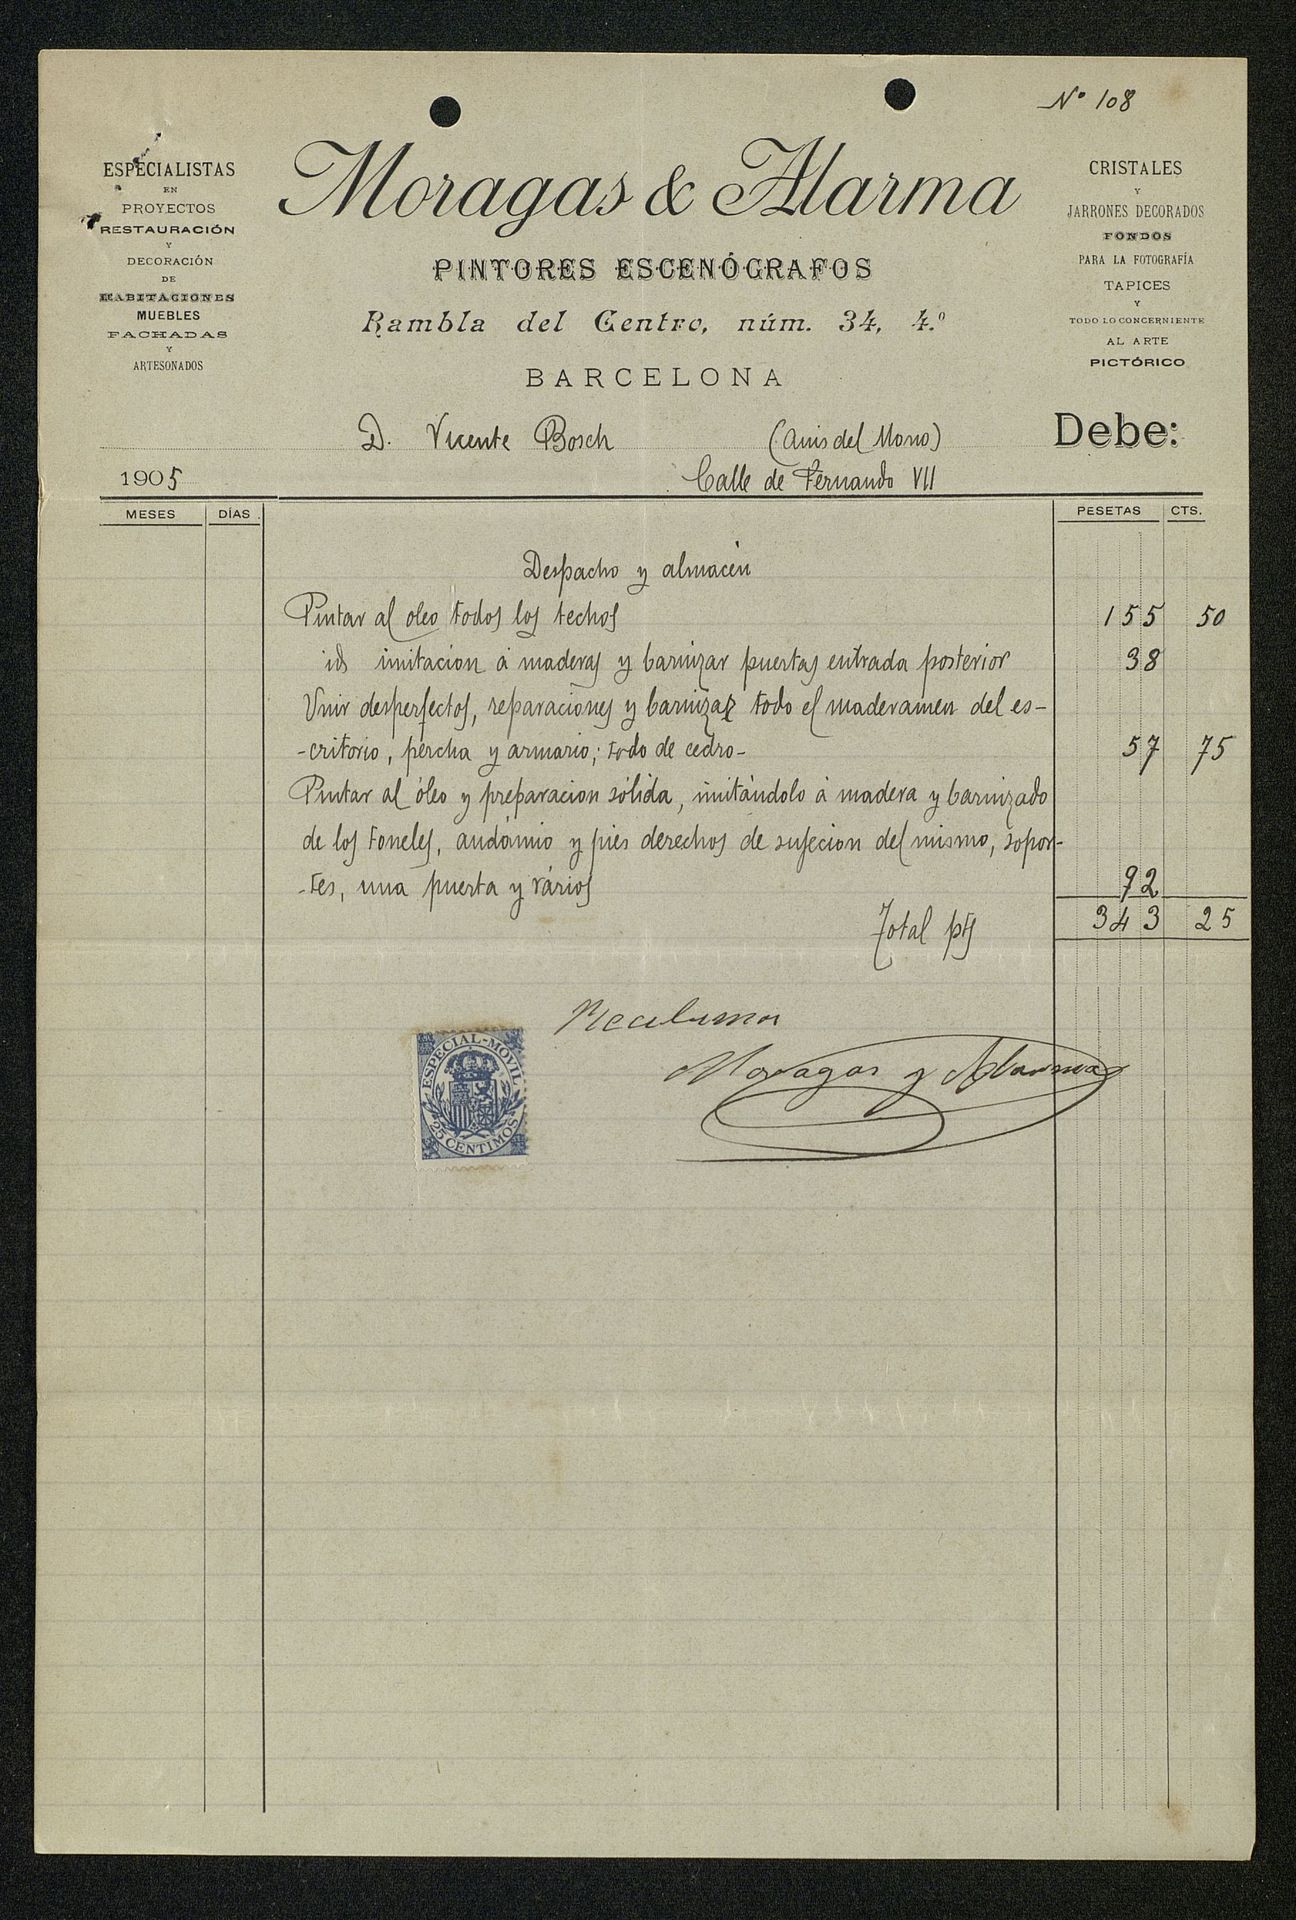 Nº 108
ESPECIALISTAS
EN
PROYECTOS
RESTAURACIÓN
Y
DECORACIÓN
DE
HABITACIONES
MUEBLES
FACHADAS
Y
ARTESONADOS
Moragas & Alarma
PINTORES ESCENÓGRAFOS
Rambla del Centro, núm. 34, 4.º
BARCELONA
CRISTALES
Y
JARRONES DECORADOS
FONDOS
PARA LA FOTOGRAFÍA
TAPICES
Y
TODO LO CONCERNIENTE
AL ARTE
PICTÓRICO
D. Vicente Bosch (Anis del Mono) Debe:
1905 Calle de Fernando VII
MESES DÍAS PESETAS CTS.
Despacho y almacén
Pintar al oleo todos los techos 155 50
id imitacion á maderas y barnizar puertas entrada posterior 38
Unir desperfectos, reparaciones y barnizar todo el maderamen del es-
-critorio, percha y armario; todo de cedro- 57 75
Pintar al óleo y preparacion sólida, imitándolo á madera y barnizado
de los toneles, andámio y pies derechos de sujecion del mismo, sopor-
-tes, una puerta y vários 92
Total pts 343 25
Recibimos
Moragas y Alarma
ESPECIAL-MOVIL
25 CENTIMOS